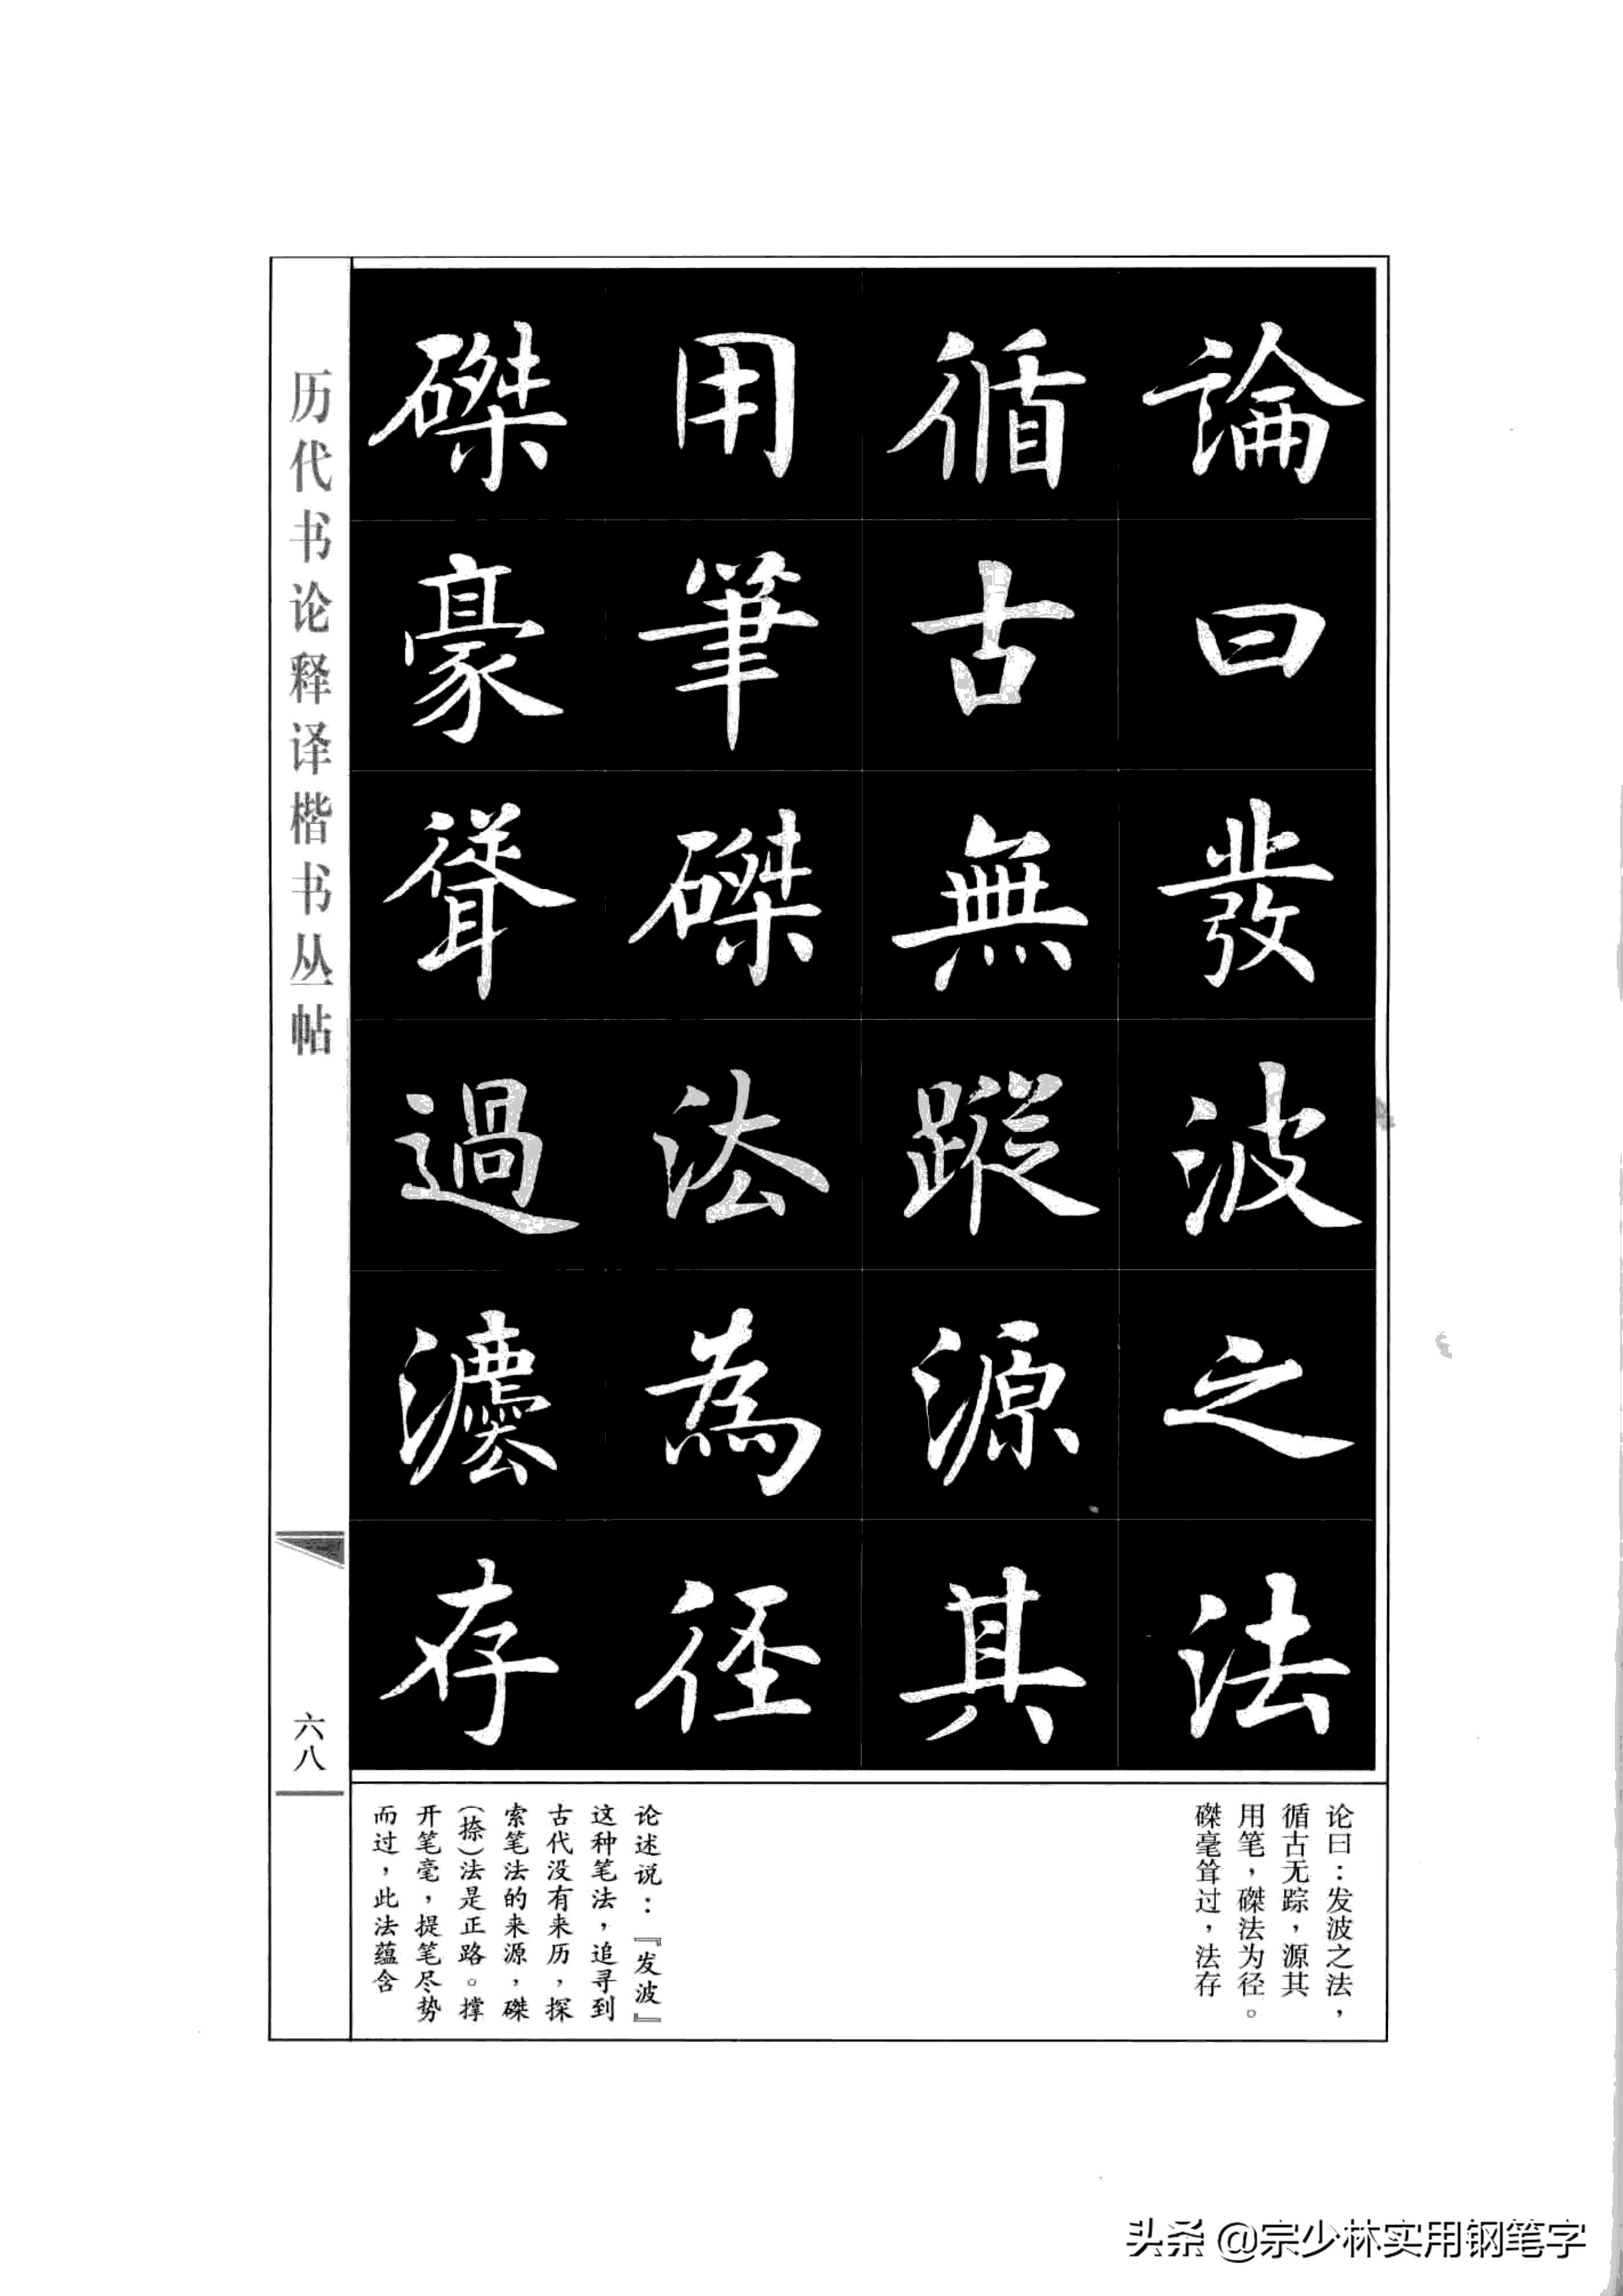 論曰發波之法
循古無蹤源其
用筆磔法為徑
磔豪聳過灋存
历代书论释译楷书丛帖
六八
论曰：发波之法，
循古无踪，源其
用笔，磔法为径。
磔毫耸过，法存
论述说：『发波』
这种笔法，追寻到
古代没有来历，探
索笔法的来源，磔
(捺)法是正路。撑
开笔毫，提笔尽势
而过，此法蕴含
头条 @宗少林实用钢笔字